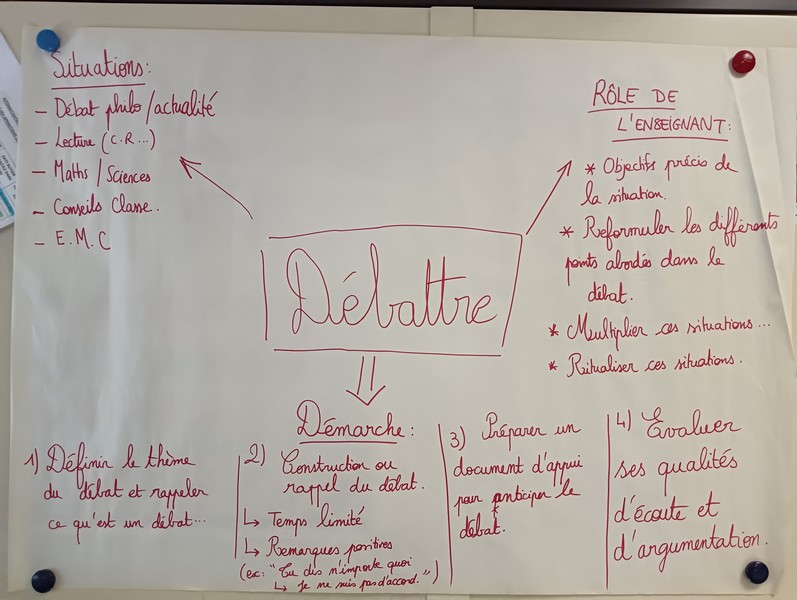 Situations:
- Débat philo/actualité
- Lecture (C.R...)
- Maths / Sciences
- Conseils Classe.
- E.M.C
RÔLE DE
L'ENSEIGNANT:
* Objectifs précis de
la situation.
* Reformuler les différents
points abordés dans le
débat.
* Multiplier ces situations...
* Ritualiser ces situations.
Débattre
Démarche:
1) Définir le thème
du débat et rappeler
ce qu'est un débat...
2) Construction ou
rappel du débat.
↳ Temps limité
↳ Remarques positives
(ex: "Tu dis n'importe quoi
↳ Je ne suis pas d'accord.")
3) Préparer un
document d'appui
pour anticiper le
débat.
4) Evaluer
ses qualités
d'écoute et
d'argumentation.